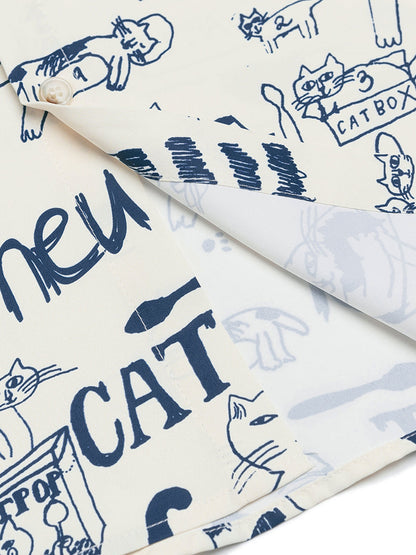 2
3
CAT BOX
neu
CAT
TPOP